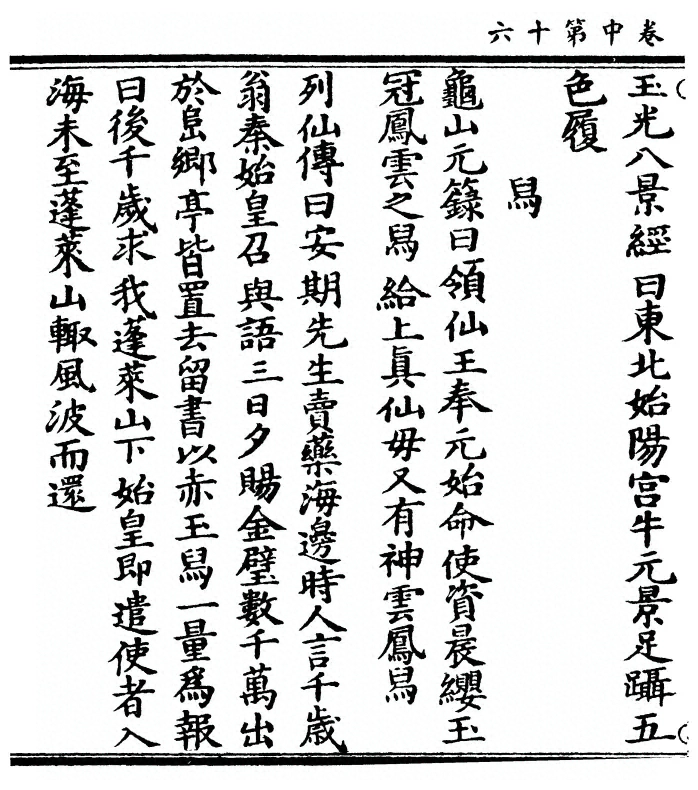 卷中第十六
玉光八景經曰東北始陽宮牛元景足躡五
色履
舄
龜山元籙曰領仙玉奉元始命使資晨纓玉
冠鳳雲之舄給上眞仙毋又有神雲鳳舄
列仙傳曰安期先生賣藥海邊時人言千歲
翁秦始皇召與語三日夕賜金璧數千萬出
於㠀鄉亭皆置去留書以赤玉舄一量爲報
曰後千歲求我蓬萊山下始皇即遣使者入
海未至蓬萊山輙風波而還